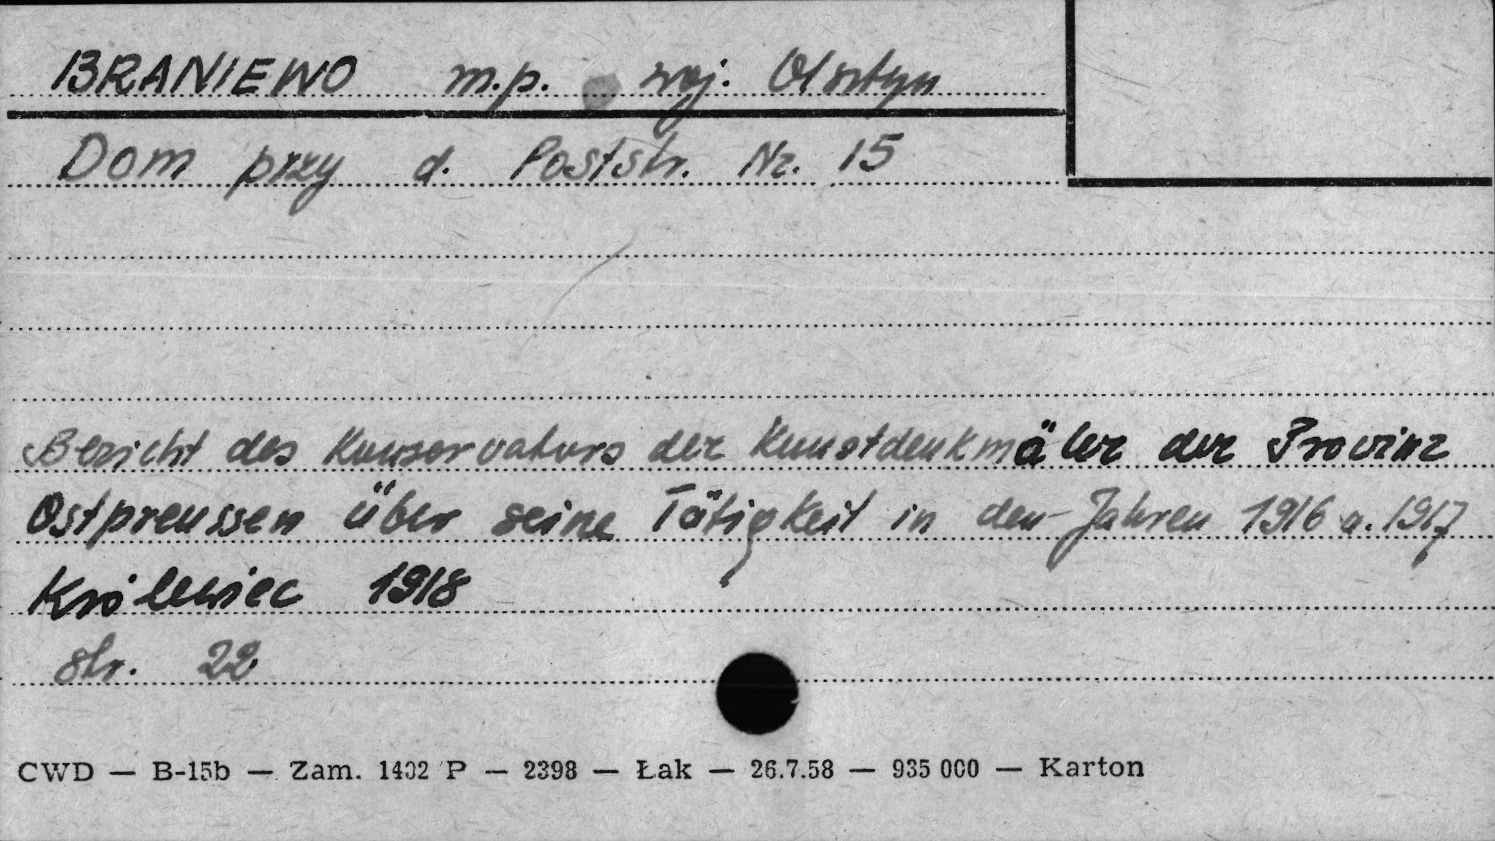 BRANIEWO m.p. woj. Olsztyn
Dom przy d. Poststr. Nr. 15
Bericht des Konservators der Kunstdenkmäler der Provinz
Ostpreussen über seine Tätigkeit in den Jahren 1916 u. 1917
Królewiec 1918
str. 22
CWD — B-15b — Zam. 1402 P — 2398 — Łak — 26.7.58 — 935 000 — Karton